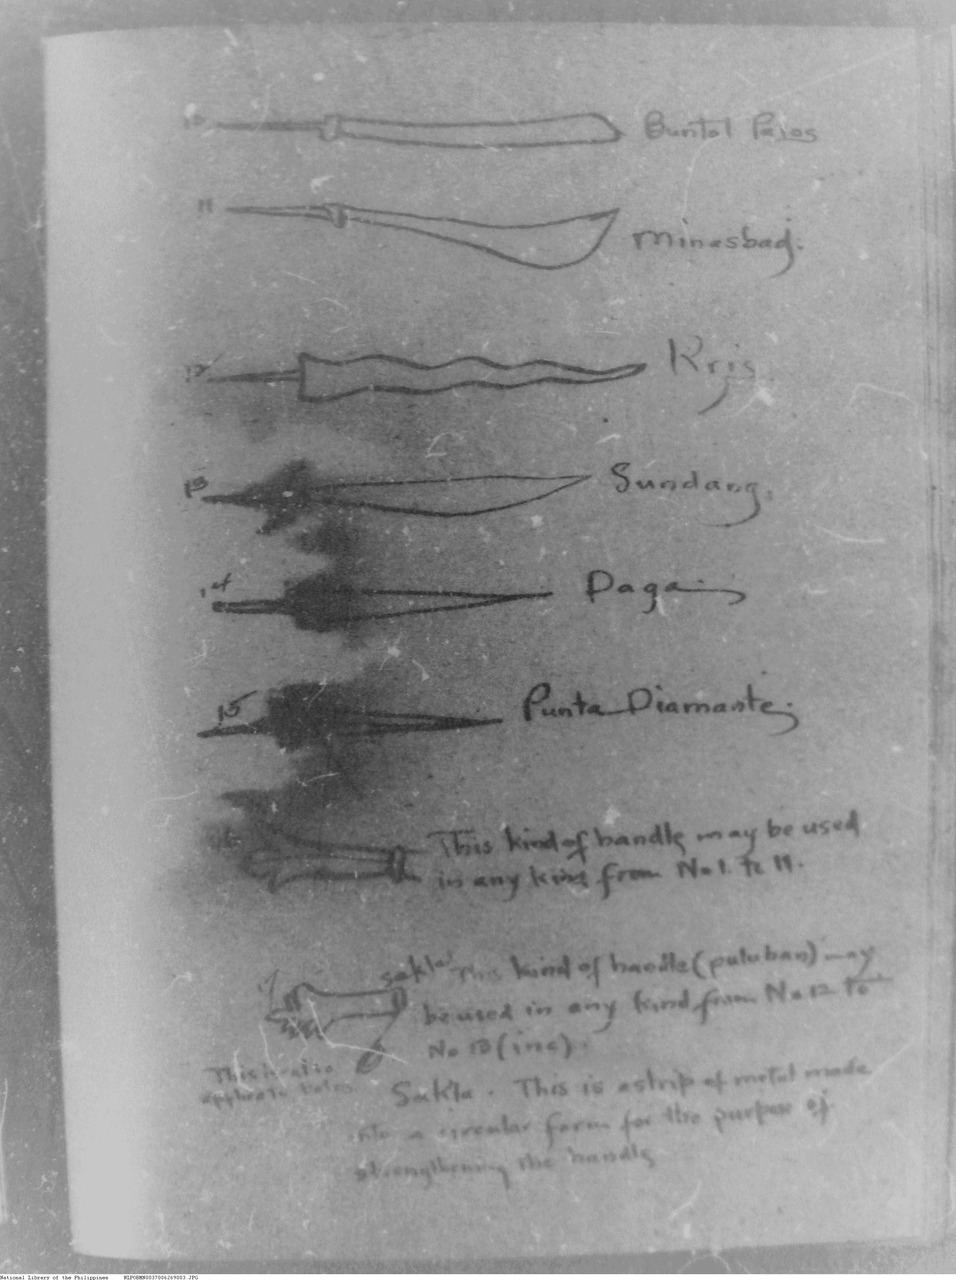 10 Buntot Pajos
11 Minasbad.
12 Kris.
13 Sundang.
14 Daga
15 Punta Diamante.
16 This kind of handle may be used
in any kind from No 1. to 11.
17 sakla This kind of handle (puluban) may
be used in any kind from No 12 to
No 13 (inc).
This is also
Sakla. This is a strip of metal made
into a circular form for the purpose of
strengthening the handle
National Library of the Philippines NLPOBMN0037006269003.JPG